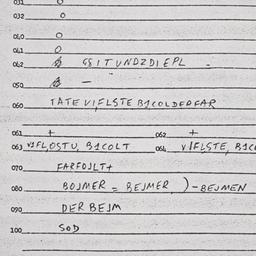 031 0
032 0
040 0
041 0
042 GSITUNDZDIEPL -
050 -
060 TATE VIFLSTE BICOLDEDFAR
061 + 062 +
063 VIFLOSTU, BICOLT 064 VIFLSTE, BICO
070 FARFOJLT+
080 BOJMER = BEJMER )-BEJMEN
090 DER BEJM
100 SOD